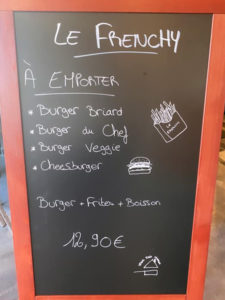 LE FRENCHY
À EMPORTER
* Burger Briard
* Burger du Chef
* Burger Veggie
* Cheesburger
Burger + Frites + Boisson
12,90€